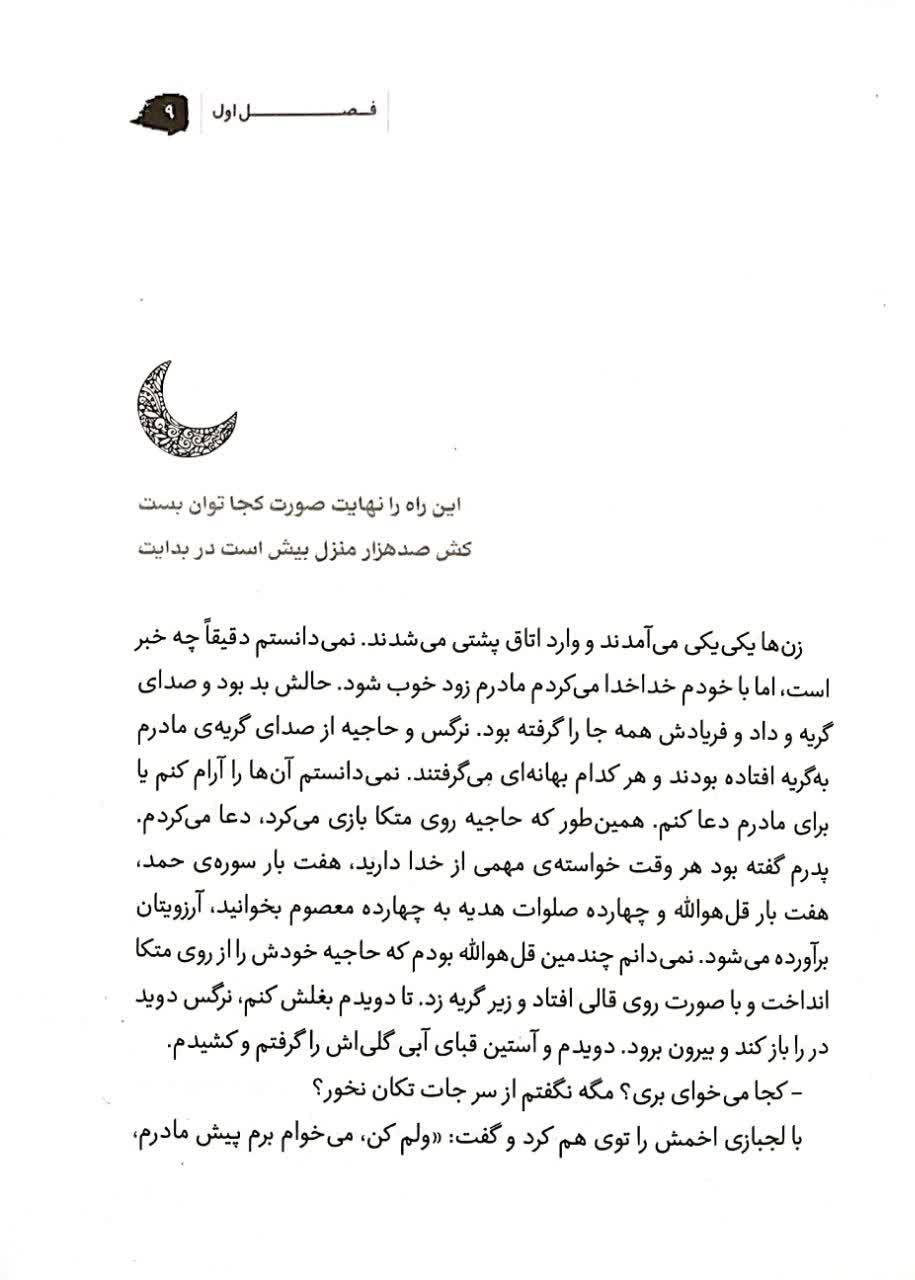 فصل اول ۹
این راه را نهایت صورت کجا توان بست
کش صدهزار منزل بیش است در بدایت
زن‌ها یکی‌یکی می‌آمدند و وارد اتاق پشتی می‌شدند. نمی‌دانستم دقیقاً چه خبر
است، اما با خودم خداخدا می‌کردم مادرم زود خوب شود. حالش بد بود و صدای
گریه و داد و فریادش همه جا را گرفته بود. نرگس و حاجیه از صدای گریه‌ی مادرم
به‌گریه افتاده بودند و هر کدام بهانه‌ای می‌گرفتند. نمی‌دانستم آن‌ها را آرام کنم یا
برای مادرم دعا کنم. همین‌طور که حاجیه روی متکا بازی می‌کرد، دعا می‌کردم.
پدرم گفته بود هر وقت خواسته‌ی مهمی از خدا دارید، هفت بار سوره‌ی حمد،
هفت بار قل‌هوالله و چهارده صلوات هدیه به چهارده معصوم بخوانید، آرزویتان
برآورده می‌شود. نمی‌دانم چندمین قل‌هوالله بودم که حاجیه خودش را از روی متکا
انداخت و با صورت روی قالی افتاد و زیر گریه زد. تا دویدم بغلش کنم، نرگس دوید
در را باز کند و بیرون برود. دویدم و آستین قبای آبی گلی‌اش را گرفتم و کشیدم.
– کجا می‌خوای بری؟ مگه نگفتم از سر جات تکان نخور؟
با لجبازی اخمش را توی هم کرد و گفت: «ولم کن، می‌خوام برم پیش مادرم،